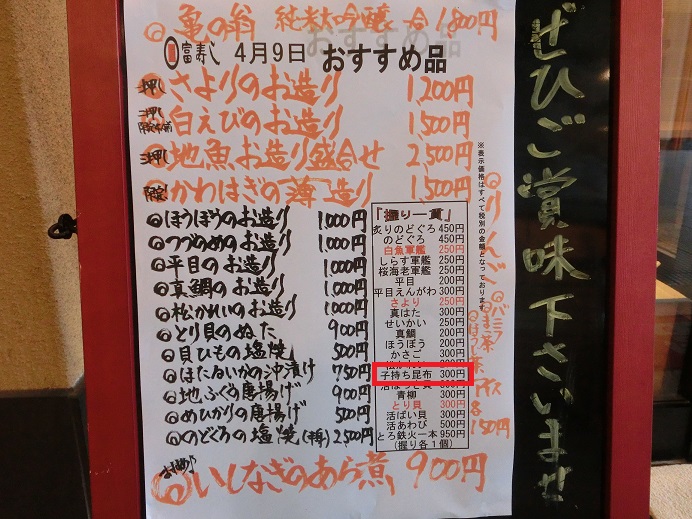 ◎亀の翁 純米大吟醸 一合1,800円
富寿し 4月9日 おすすめ品
一押し さよりのお造り 1,200円
二押し 白えびのお造り 1,500円
三押し 地魚お造り盛合せ 2,500円
かわはぎの薄造り 1,500円
◎ほうぼうのお造り 1,000円
◎つづのめのお造り 1,000円
◎平目のお造り 1,000円
◎真鯛のお造り 1,000円
◎松かれいのお造り 1,000円
◎とり貝のぬた 900円
◎貝ひもの塩焼 500円
◎ほたるいかの沖漬け 750円
◎地ふぐの唐揚げ 900円
◎めひかりの唐揚げ 500円
◎のどぐろの塩焼(半身) 2,500円
◎いしなぎのあら煮 900円
『握り一貫』
炙りのどぐろ 450円
のどぐろ 450円
白魚軍艦 250円
しらす軍艦 250円
桜海老軍艦 250円
平目 200円
平目えんがわ 300円
さより 250円
真はた 300円
せいかい 250円
真鯛 200円
ほうぼう 200円
かさご 300円
子持ち昆布 300円
青柳 300円
とり貝 300円
活ばい貝 300円
活あわび 500円
とろ鉄火一本 950円
(握り各1個)
※表示価格はすべて税別の金額となっております
◎りんご
◎バニラ
◎ほうじ茶
アイス
各150円
ぜひご賞味下さいませ